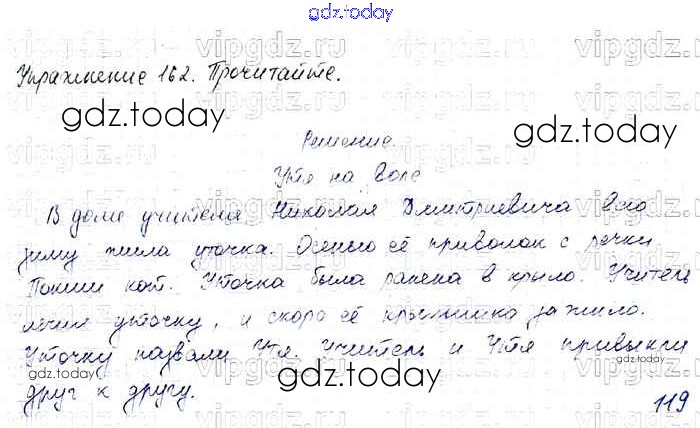 gdz.today
Упражнение 162. Прочитайте.
gdz.today
gdz.today
Решение
Утя на воле
В доме учителя Николая Дмитриевича всю
зиму жила уточка. Осенью её приволок с речки
кот. Уточка была ранена в крыло. Учитель
лечил уточку, и скоро её крылышко зажило.
Уточку назвали Утя. Учитель и Утя привыкли
gdz.today
gdz.today
gdz.today
друг к другу.
119